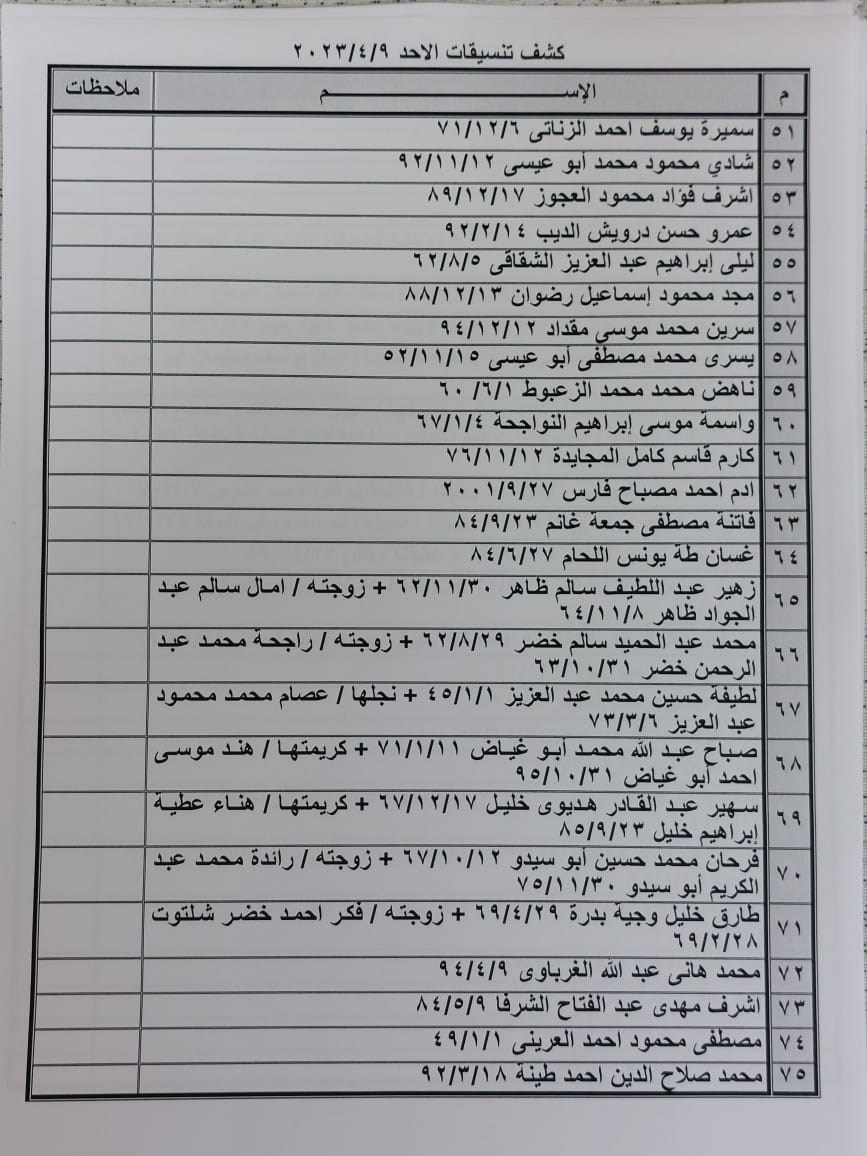 كشف تنسيقات الاحد ٢٠٢٣/٤/٩
م الإســـــــــــــم ملاحظات
٥١ سميرة يوسف احمد الزناتى ٧١/١٢/٦
٥٢ شادي محمود محمد أبو عيسى ٩٢/١١/١٢
٥٣ اشرف فؤاد محمود العجوز ٨٩/١٢/١٧
٥٤ عمرو حسن درويش الديب ٩٢/٢/١٤
٥٥ ليلى إبراهيم عبد العزيز الشقاقى ٦٢/٨/٥
٥٦ مجد محمود إسماعيل رضوان ٨٨/١٢/١٣
٥٧ سرين محمد موسى مقداد ٩٤/١٢/١٢
٥٨ يسرى محمد مصطفى أبو عيسى ٥٢/١١/١٥
٥٩ ناهض محمد محمد الزعبوط ٦٠/٦/١
٦٠ واسمة موسى إبراهيم النواجحة ٦٧/١/٤
٦١ كارم قاسم كامل المجايدة ٧٦/١١/١٢
٦٢ ادم احمد مصباح فارس ٢٠٠١/٩/٢٧
٦٣ فاتنة مصطفى جمعة غانم ٨٤/٩/٢٣
٦٤ غسان طة يونس اللحام ٨٤/٦/٢٧
٦٥ زهير عبد اللطيف سالم ظاهر ٦٢/١١/٣٠ + زوجته / امال سالم عبد
الجواد ظاهر ٦٤/١١/٨
٦٦ محمد عبد الحميد سالم خضر ٦٢/٨/٢٩ + زوجته / راجحة محمد عبد
الرحمن خضر ٦٣/١٠/٣١
٦٧ لطيفة حسين محمد عبد العزيز ٤٥/١/١ + نجلها / عصام محمد محمود
عبد العزيز ٧٣/٣/٦
٦٨ صباح عبد الله محمد أبو غياض ٧١/١/١١ + كريمتها / هند موسى
احمد أبو غياض ٩٥/١٠/٣١
٦٩ سهير عبد القادر هديوى خليل ٦٧/١٢/١٧ + كريمتها / هناء عطية
إبراهيم خليل ٨٥/٩/٢٣
٧٠ فرحان محمد حسين أبو سيدو ٦٧/١٠/١٢ + زوجته / رائدة محمد عبد
الكريم أبو سيدو ٧٥/١١/٣٠
٧١ طارق خليل وجية بدرة ٦٩/٤/٢٩ + زوجته / فكر احمد خضر شلتوت
٦٩/٢/٢٨
٧٢ محمد هانى عبد الله الغرباوى ٩٤/٤/٩
٧٣ اشرف مهدى عبد الفتاح الشرفا ٨٤/٥/٩
٧٤ مصطفى محمود احمد العرينى ٤٩/١/١
٧٥ محمد صلاح الدين احمد طينة ٩٢/٣/١٨